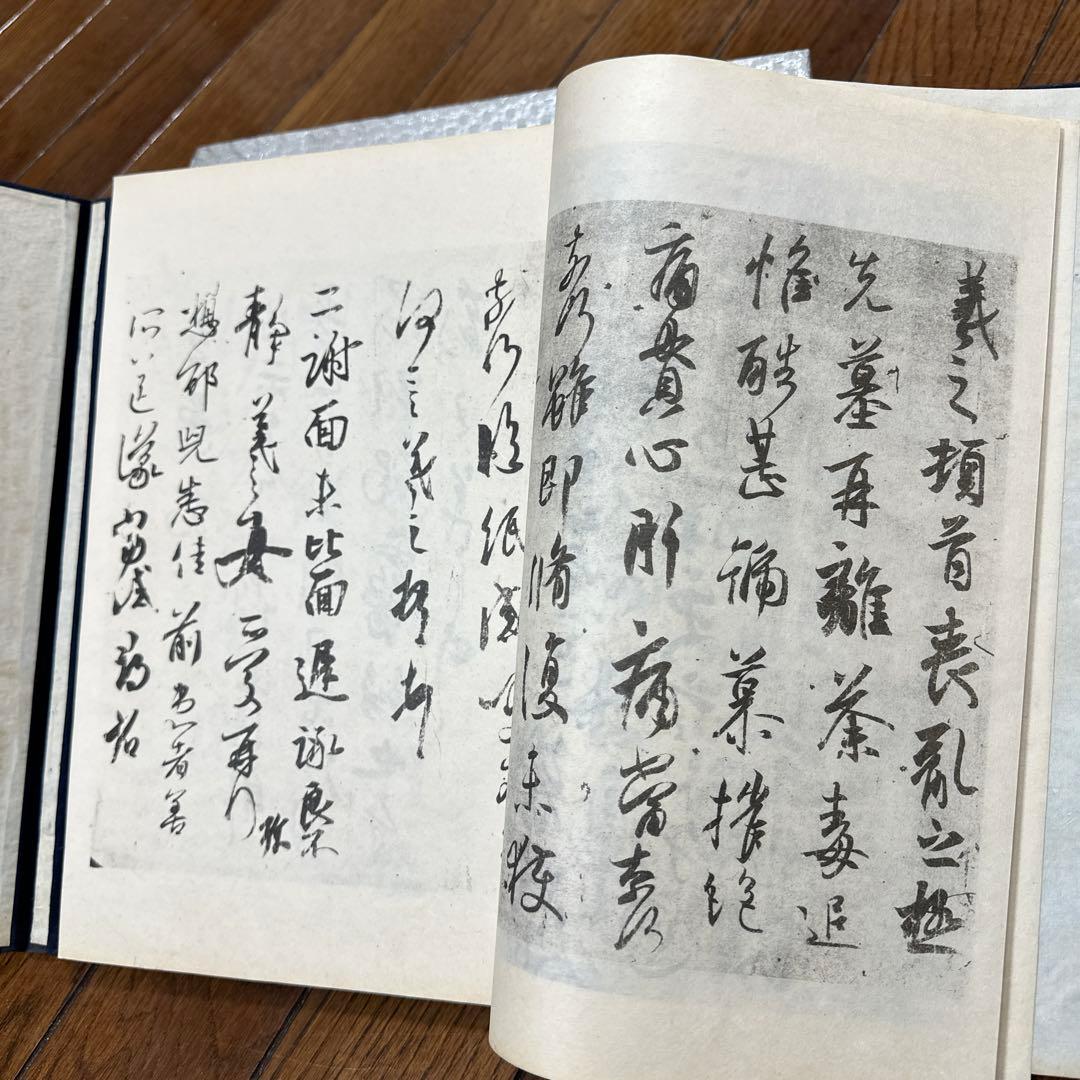 羲之頓首喪亂之極
先墓再離荼毒追
惟酷甚號慕摧絶
痛貫心肝痛當奈何
奈何雖即脩復未獲
奈何臨紙感哽
何言羲之頓首
二謝面未比面遲詠良不
靜羲之女愛再拜
珍
想邵兒悉佳前患者善
所送議當試尋省